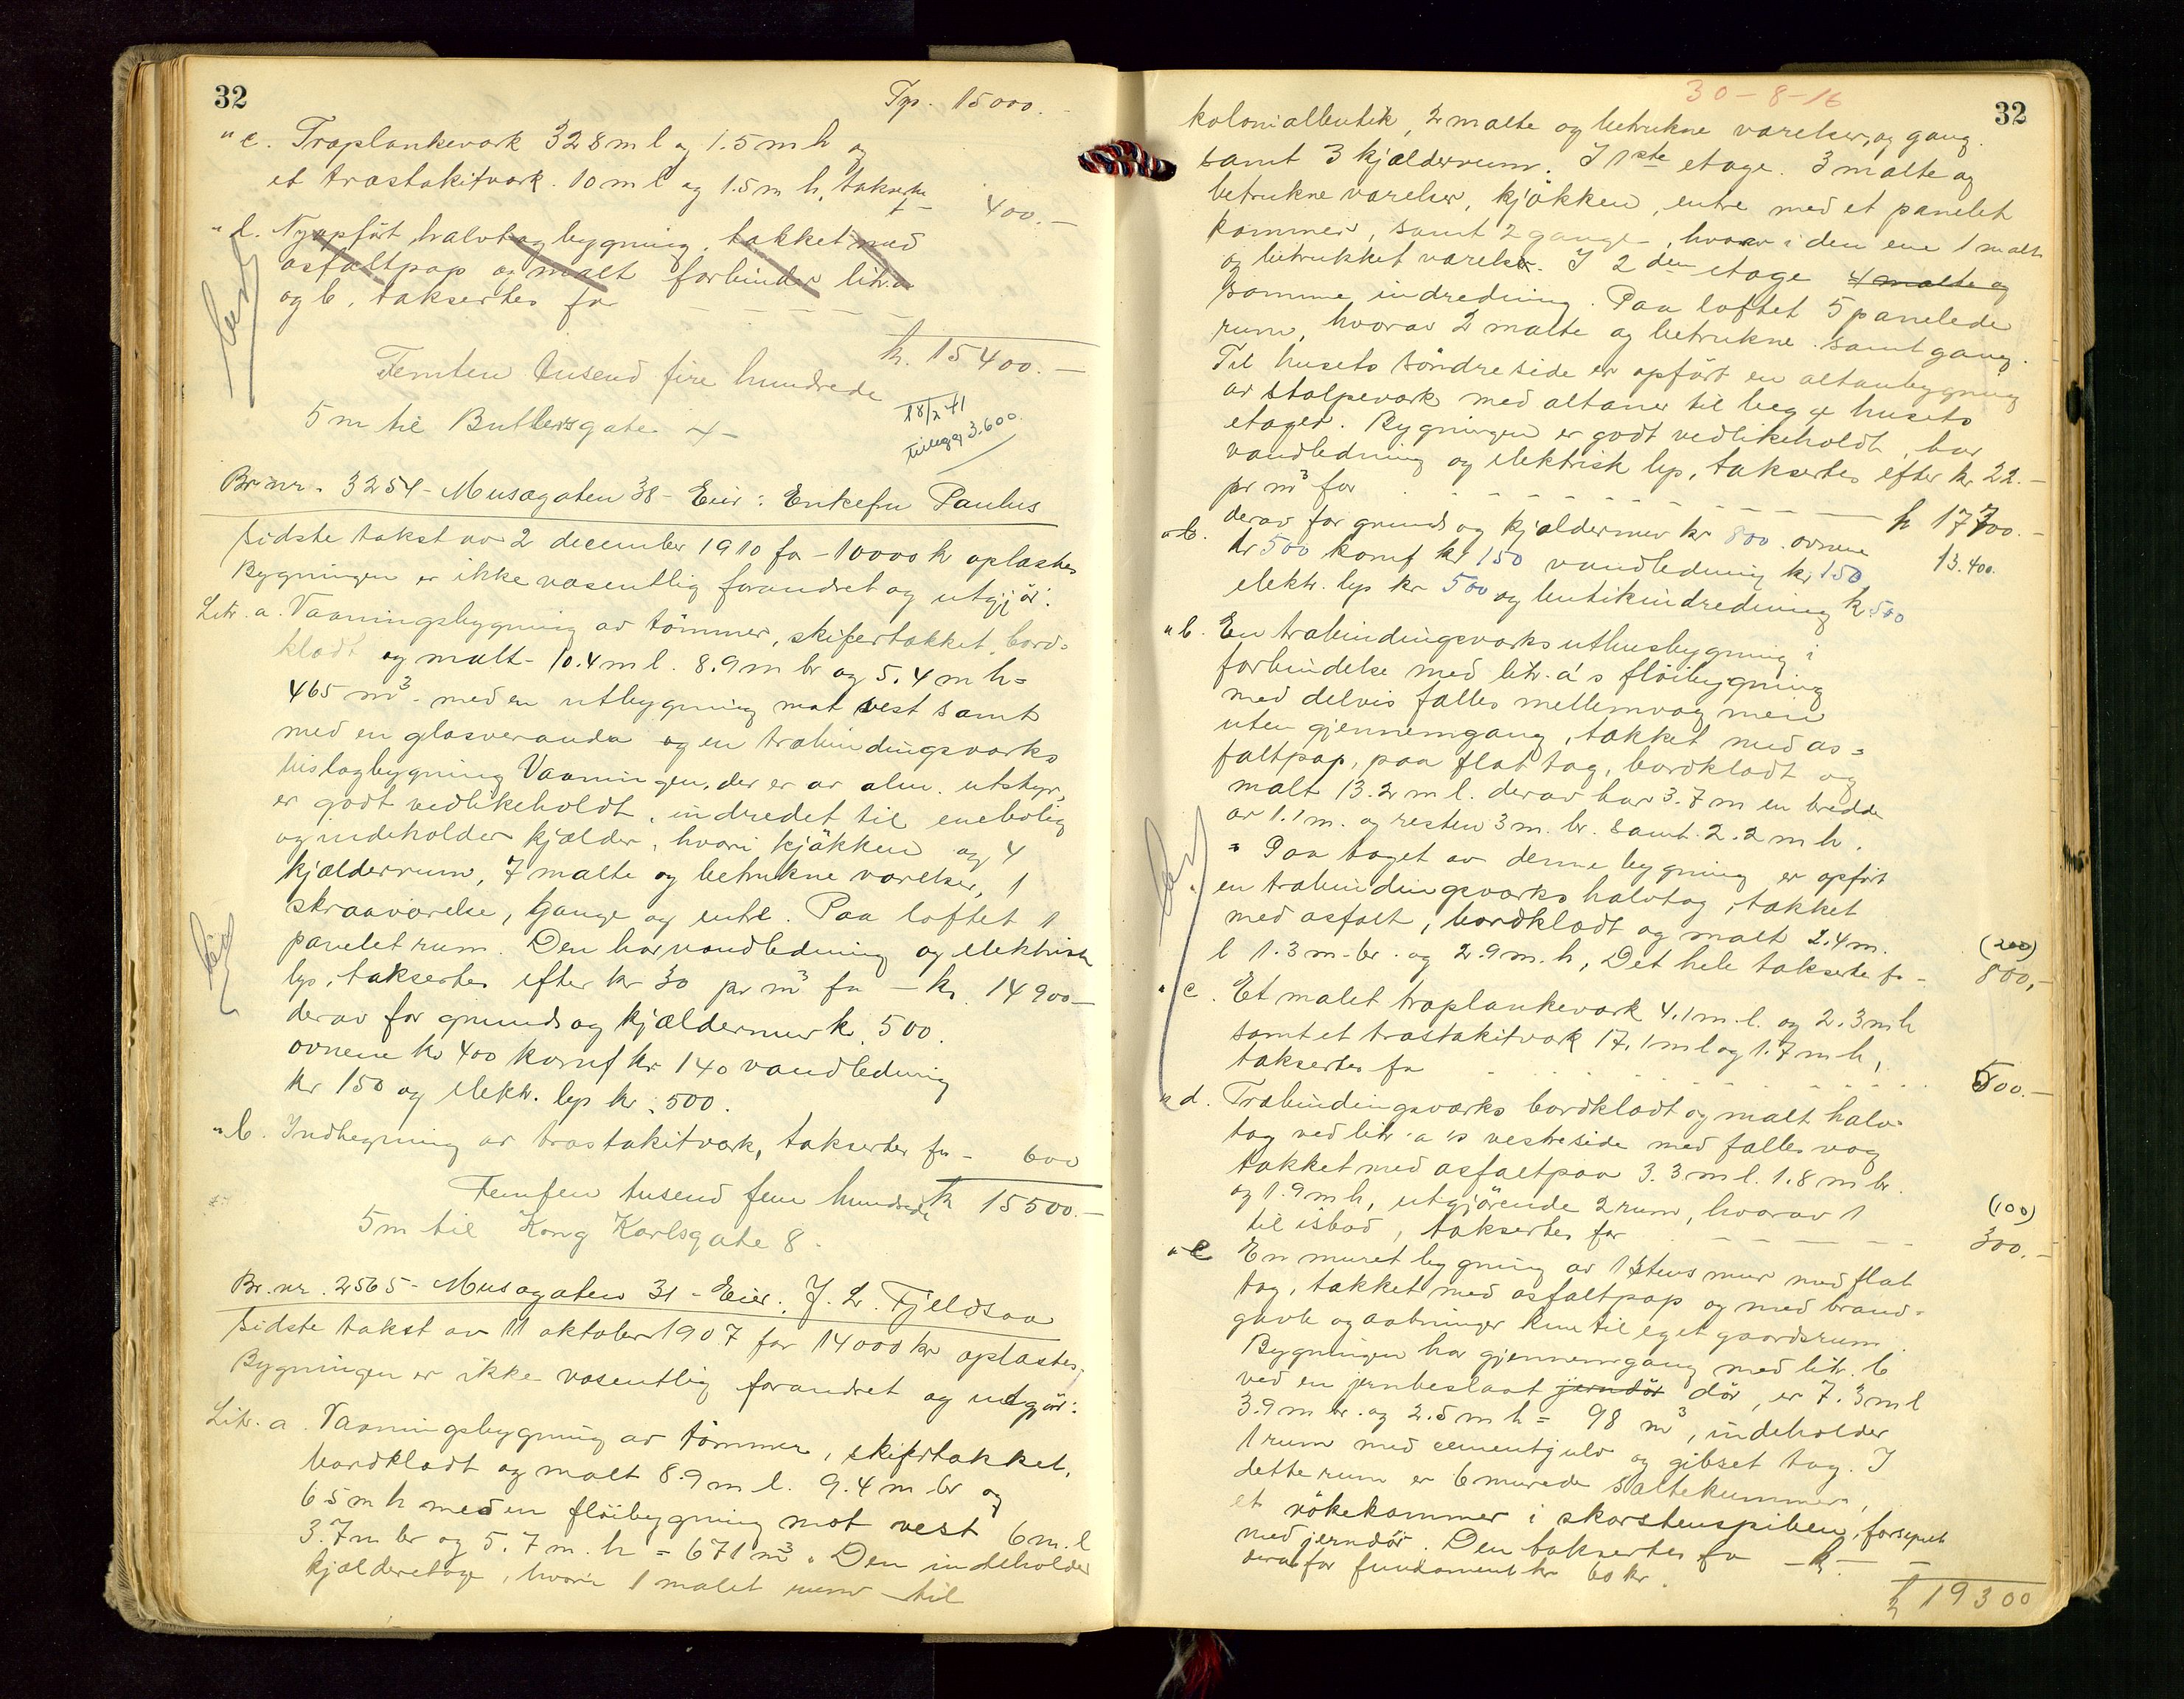 32
Trp. 15000.-
" c. Træplankeverk 328 m l og 1.5 m h og
et træstakitverk. 10 m l og 1.5 m h, takserte
400.-
" d. Nyopført halvtagbygning, tækket med
asfaltpap og malt forbinder litr. a
og b, taksertes for - - - - -
kr. 15400.-
Femten tusend fire hundrede
18/2 41
5 m til Butlersgate 4-
Tillegg 3.600.
Br. nr. 3254 - Musægaten 38 - Eier: Enkefru Paulus
Sidste takst av 2 december 1910 for - 10000 kr oplæstes
Bygningen er ikke væsentlig forandret og utgjør:
Litr. a. Vaaningsbygning av tömmer, skifertækket, bord-
klædt og malt - 10.4 m l. 8.9 m br og 5.4 m h =
465 m³ med en utbygning mot vest samt
med en glasveranda og en træbindingsværks
bislagbygning Vaaningen, der er av alm. utstyr,
er godt vedlikeholdt, indredet til enebolig
og indeholder kjælder, hvori kjökken og 4
kjælderrum, 7 malte og betrukne værelser, 1
skraaværelse, gange og entre. Paa loftet 1
panelet rum. Den har vandledning og elektrisk
lys, taksertes efter kr 30 pr m³ for - kr. 14900-
derav for grund og kjældermur kr. 500.
ovnene kr 400 komf kr 140 vandledning
kr 150 og elektr. lys kr. 500.
" b. Indhegning av træstakitværk, taksertes for - 600
Femten tusend fem hundrede kr 15500.-
5 m til Kong Karlsgate 8.
Br. nr. 2565 - Musægaten 31 - Eier: J. L. Fjeldsaa
Sidste takst av 11 oktober 1907 for 14000 kr oplæstes,
Bygningen er ikke væsentlig forandret og utgjør:
Litr. a. Vaaningsbygning av tömmer, skifertækket,
bordklædt og malt 8.9 m l. 9.4 m br og
6.5 m h med en flöibygning mot vest 6 m. l
3.7 m br og 5.7 m. h = 671 m³. Den indeholder
kjælderetage, hvori 1 malet rum til
30-8-16
32
kolonialbutik, 2 malte og betrukne værelser, og gang.
samt 3 kjælderrum. I 1ste etage. 3 malte og
betrukne værelser, kjökken, entre med et panelet
kammer, samt 2 gange, hvorav i den ene 1 malt
og betrukket værelse. I 2den etage 4 malte og
samme indredning. Paa loftet 5 panelede
rum, hvorav 2 malte og betrukne samt gang.
Til husets söndre side er opfört en altanbygning
av stolpeverk med altaner til begge husets
etager. Bygningen er godt vedlikeholdt, har
vandledning og elektrisk lys, taksertes efter kr 22.-
pr m³ for - - - - - kr 17700.-
derav for grund og kjældermur kr 800. ovnene
13.400.
kr 500 komf kr 150 vandledning kr 150,
elektr. lys kr 500 og butikindredning kr 500
" b. En træbindingsværks uthusbygning i
forbindelse med litr. a's flöibygning
med delvis fælles mellemvæg men
uten gjennemgang, tækket med as-
faltpap, paa flat tag, bordklædt og
malt 13.2 m l. derav har 3.7 m en bredde
av 1.1 m. og resten 3 m. br. samt 2.2 m h.
Paa taget av denne bygning er opfört
en træbindingsværks halvtag, tækket
med asfalt, bordklædt og malt 2.4 m.
(200)
l 1.3 m. br. og 2.9 m. h, Det hele takserte for - 800,-
" c. Et malet træplankeverk 4.1 m. l. og 2.3 m h
samt et træstakitværk 17.1 m l og 1.7 m h,
taksertes for 500.-
" d. Træbindingsværks bordklædt og malt halv-
tag ved litr. a's vestre side med fælles væg
tækket med asfaltpap 3.3 m l. 1.8 m br.
og 1.9 m h, utgjörende 2 rum, hvorav 1
(100)
til isbod, taksertes for - - - - - 300.-
" e En muret bygning av 1 stens mur med flat
tag, tækket med asfaltpap og med brand-
gavle og aabninger kun til eget gaardsrum.
Bygningen har gjennemgang med litr. b
ved en jernbeslaat jerndör dör, er 7.3 m l
3.9 m br. og 2.5 m h = 98 m³, indeholder
1 rum med cementgulv og gibset tag. I
dette rum er 6 murede saltekummer,
et rökekammer i skorstenspiben, forsynet
med jerndör. Den taksertes for - kr. -
derav for fundament kr 60 kr.
kr 19300